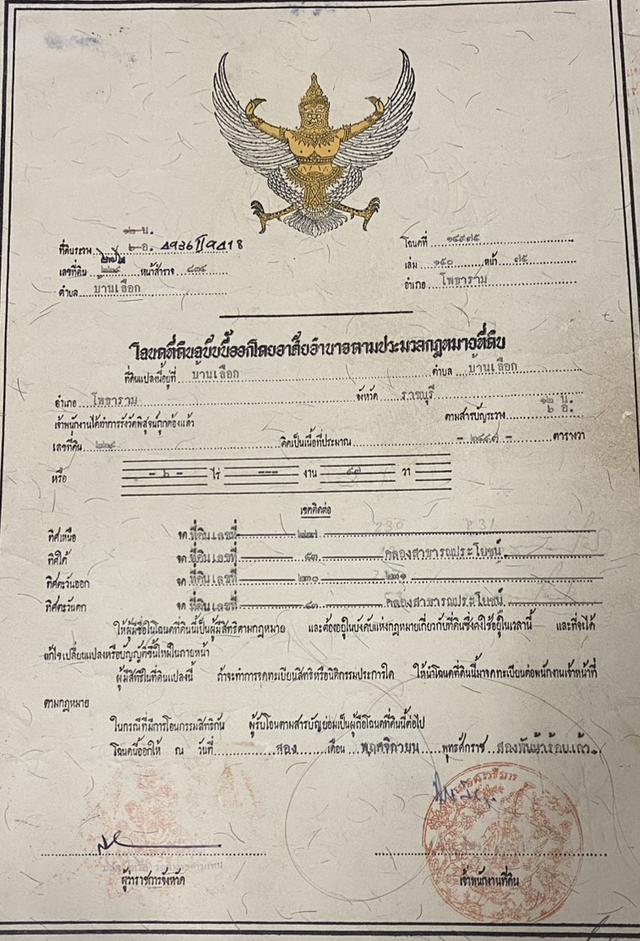 ๑๒ น.
ที่ดินระวาง ๖ อ. 4936 II 9418
โฉนดที่ ๑๔๙๙๕
เลขที่ดิน หน้าสำรวจ ๘๓๔
เล่ม ๑๕๐ หน้า ๙๕
ตำบล บ้านเลือก
อำเภอ โพธาราม
โฉนดที่ดินฉบับนี้ออกโดยอาศัยอำนาจตามประมวลกฎหมายที่ดิน
ที่ดินแปลงนี้อยู่ที่ บ้านเลือก ตำบล บ้านเลือก
อำเภอ โพธาราม จังหวัด ราชบุรี ๑๒ น.
เจ้าพนักงานได้ทำการรังวัดพิสูจน์ถูกต้องแล้ว ตามสารบัญระวาง ๖ อ.
เลขที่ดิน ๒๒๘ คิดเป็นเนื้อที่ประมาณ ตารางวา
หรือ - ๖ - ไร่ --- งาน ๔๗ วา
เขตติดต่อ
ทิศเหนือ จด ที่ดินเลขที่ ๒๒๗ 230 231
ทิศใต้ จด ที่ดินเลขที่ ๕๓ คลองสาธารณประโยชน์
ทิศตะวันออก จด ที่ดินเลขที่ ๒๓๐ ๒๓๑
ทิศตะวันตก จด ที่ดินเลขที่ ๔๓ คลองสาธารณประโยชน์
ให้ผู้มีชื่อในโฉนดที่ดินนี้เป็นผู้มีสิทธิตามกฎหมาย และต้องอยู่ในบังคับแห่งกฎหมายเกี่ยวกับที่ดินซึ่งคงใช้อยู่ในเวลานี้ และที่จะได้
แก้ไขเปลี่ยนแปลงหรือบัญญัติขึ้นใหม่ในภายหน้า
ผู้มีสิทธิในที่ดินแปลงนี้ ถ้าจะทำการจดทะเบียนสิทธิหรือนิติกรรมประการใด ให้นำโฉนดที่ดินนี้มาจดทะเบียนต่อพนักงานเจ้าหน้าที่
ตามกฎหมาย
ในกรณีที่มีการโอนกรรมสิทธิกัน ผู้รับโอนตามสารบัญย่อมเป็นผู้ถือโฉนดที่ดินนี้ต่อไป
โฉนดนี้ออกให้ ณ วันที่ สอง เดือน พฤศจิกายน พุทธศักราช สองพันห้าร้อยเก้า
ผู้ว่าราชการจังหวัด เจ้าพนักงานที่ดิน